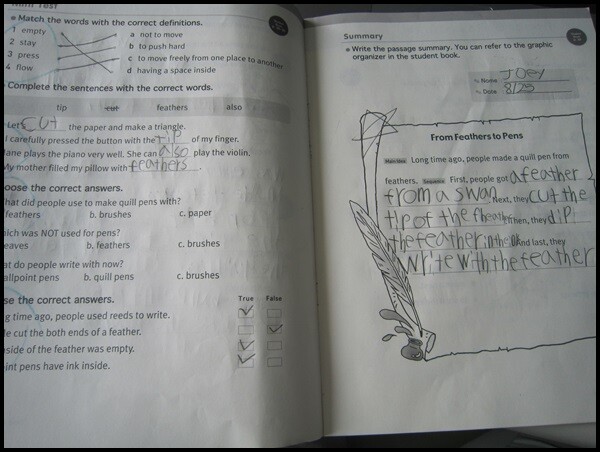 Mini Test
Match the words with the correct definitions.
1 empty
2 stay
3 press
4 flow
a not to move
b to push hard
c to move freely from one place to another
d having a space inside
Complete the sentences with the correct words.
tip cut feathers also
Let's cut the paper and make a triangle.
I carefully pressed the button with the tip of my finger.
ane plays the piano very well. She can also play the violin.
My mother filled my pillow with feathers.
oose the correct answers.
hat did people use to make quill pens with?
feathers b. brushes c. paper
hich was NOT used for pens?
eaves b. feathers c. brushes
at do people write with now?
allpoint pens b. quill pens c. brushes
se the correct answers.
True False
g time ago, people used reeds to write.
le cut the both ends of a feather.
side of the feather was empty.
int pens have ink inside.
Summary
Write the passage summary. You can refer to the graphic
organizer in the student book.
Name Joey
Date 8/25
From Feathers to Pens
Main Idea Long time ago, people made a quill pen from
feathers. Sequence First, people got a feather
from a swan Next, they cut the
tip of the feather Then, they dip
the feather in the ink And last, they
write with the feather